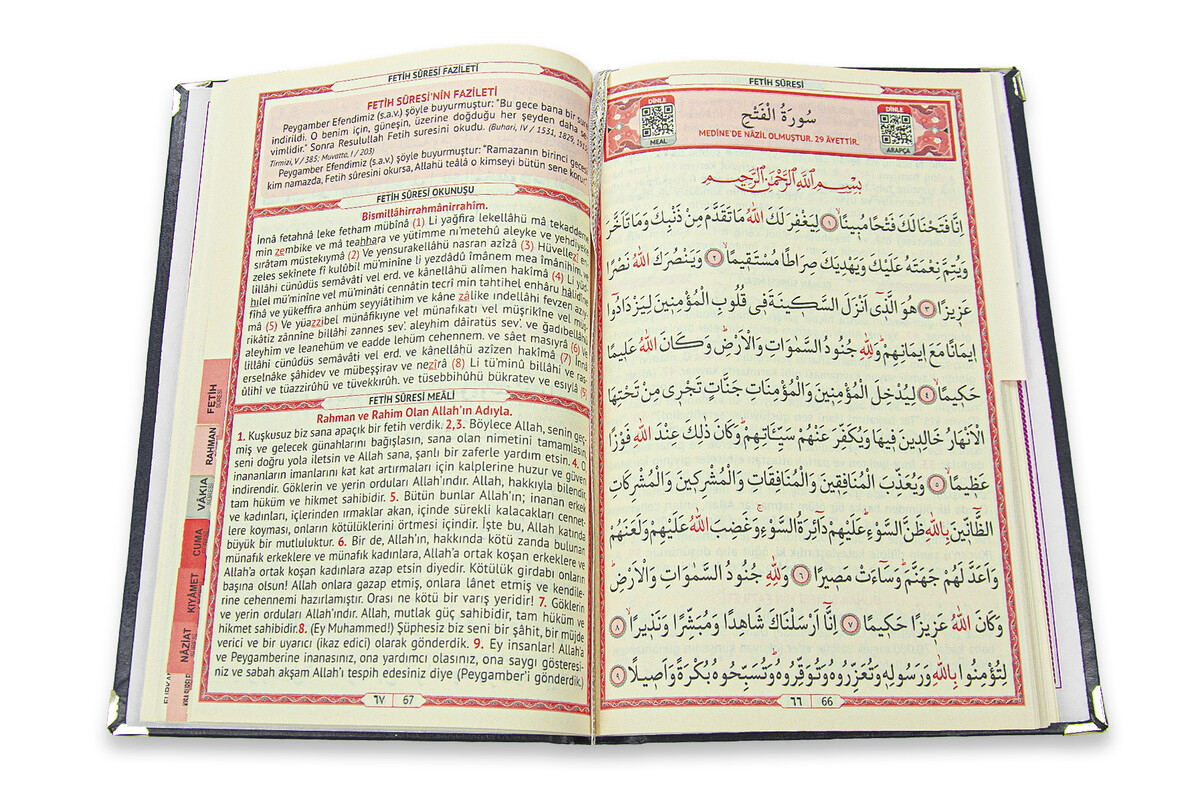 FETİH SÛRESİ FAZİLETİ
FETİH SÛRESİ'NİN FAZİLETİ
Peygamber Efendimiz (s.a.v.) şöyle buyurmuştur: "Bu gece bana bir sure
indirildi. O benim için, güneşin, üzerine doğduğu her şeyden daha se-
vimlidir." Sonra Resulullah Fetih suresini okudu. (Buhari, IV / 1531, 1829, 1915;
Tirmizi, V / 385; Muvatta, I / 203)
Peygamber Efendimiz (s.a.v.) şöyle buyurmuştur: "Ramazanın birinci gecesi
kim namazda, Fetih sûresini okursa, Allahü teâlâ o kimseyi bütün sene korur."
FETİH SÛRESİ OKUNUŞU
Bismillâhirrahmânirrahîm.
İnnâ fetahnâ leke fetham mübînâ (1) Li yağfira lekellâhü mâ tekaddeme
min zembike ve mâ teahhara ve yütimme nı'metehû aleyke ve yehdiyeke
sırâtam müstekıymâ (2) Ve yensurakellâhü nasran azîzâ (3) Hüvellezî en-
zeles sekînete fî kulûbil mü'minîne li yezdâdû îmânem mea îmânihim, ve
lillâhi cünûdüs semâvâti vel erd. ve kânellâhü alîmen hakîmâ (4) Li yüd-
hılel mü'minîne vel mü'minâti cennâtin tecrî min tahtihel enhâru hâlidîne
fîhâ ve yükeffira anhüm seyyiâtihim ve kâne zâlike ındellâhi fevzen azıy-
mâ (5) Ve yüazzibel münâfikıyne vel münafikati vel müşrikîne vel müş-
rikâtiz zânnîne billâhi zannes sev'. aleyhim dâiratüs sev'. ve ğadıbellâhü
aleyhim ve leanehüm ve eadde lehüm cehennem. ve sâet masıyrâ (6) Ve
lillâhi cünûdüs semâvâti vel erd. ve kânellâhü azîzen hakîmâ (7) İnnâ
erselnâke şâhidev ve mübeşşirav ve nezîrâ (8) Li tü'minû billâhi ve ras-
ûlihî ve tüazzirûhü ve tüvekkırûh. ve tüsebbihûhü bükratev ve esıylâ (9)
FETİH SÛRESİ MEÂLİ
Rahman ve Rahim Olan Allah'ın Adıyla.
1. Kuşkusuz biz sana apaçık bir fetih verdik. 2,3. Böylece Allah, senin geç-
miş ve gelecek günahlarını bağışlasın, sana olan nimetini tamamlasın,
seni doğru yola iletsin ve Allah sana, şanlı bir zaferle yardım etsin. 4. O,
inananların imanlarını kat kat artırmaları için kalplerine huzur ve güven
indirendir. Göklerin ve yerin orduları Allah'ındır. Allah, hakkıyla bilendir,
tam hüküm ve hikmet sahibidir. 5. Bütün bunlar Allah'ın; inanan erkek
ve kadınları, içlerinden ırmaklar akan, içinde sürekli kalacakları cennet-
lere koyması, onların kötülüklerini örtmesi içindir. İşte bu, Allah katında
büyük bir mutluluktur. 6. Bir de, Allah'ın, hakkında kötü zanda bulunan
münafık erkeklere ve münafık kadınlara, Allah'a ortak koşan erkeklere ve
Allah'a ortak koşan kadınlara azap etsin diyedir. Kötülük girdabı onların
başına olsun! Allah onlara gazap etmiş, onlara lânet etmiş ve kendile-
rine cehennemi hazırlamıştır. Orası ne kötü bir varış yeridir! 7. Göklerin
ve yerin orduları Allah'ındır. Allah, mutlak güç sahibidir, tam hüküm ve
hikmet sahibidir.8. (Ey Muhammed!) Şüphesiz biz seni bir şâhit, bir müjde
verici ve bir uyarıcı (ikaz edici) olarak gönderdik. 9. Ey insanlar! Allah'a
ve Peygamberine inanasınız, ona yardımcı olasınız, ona saygı gösteresi-
niz ve sabah akşam Allah'ı tespih edesiniz diye (Peygamber'i gönderdik.)
٦٧ 67
FETİH SÛRESİ
RAHMAN
VÂKIA
CUMA
KIYÂMET
NÂZİAT
FETİH SÛRESİ
DİNLE
MEAL
سُورَةُ الْفَتْحِ
MEDİNE'DE NÂZİL OLMUŞTUR. 29 ÂYETTİR.
DİNLE
ARAPÇA
بِسْمِ اللهِ الرَّحْمٰنِ الرَّحِيمِ
اِنَّا فَتَحْنَا لَكَ فَتْحًا مُبِينًاۙ ﴿١﴾ لِيَغْفِرَ لَكَ اللهُ مَا تَقَدَّمَ مِنْ ذَنْبِكَ وَمَا تَاَخَّرَ
وَيُتِمَّ نِعْمَتَهُ عَلَيْكَ وَيَهْدِيَكَ صِرَاطًا مُسْتَقِيمًاۙ ﴿٢﴾ وَيَنْصُرَكَ اللهُ نَصْرًا
عَزِيزًا ﴿٣﴾ هُوَ الَّذِٓي اَنْزَلَ السَّكِينَةَ فِي قُلُوبِ الْمُؤْمِنِينَ لِيَزْدَادُٓوا
اِيمَانًا مَعَ اِيمَانِهِمْۜ وَلِلّٰهِ جُنُودُ السَّمٰوَاتِ وَالْاَرْضِۜ وَكَانَ اللهُ عَلِيمًا
حَكِيمًاۙ ﴿٤﴾ لِيُدْخِلَ الْمُؤْمِنِينَ وَالْمُؤْمِنَاتِ جَنَّاتٍ تَجْرِي مِنْ تَحْتِهَا
الْاَنْهَارُ خَالِدِينَ فِيهَا وَيُكَفِّرَ عَنْهُمْ سَيِّـَٔاتِهِمْۜ وَكَانَ ذٰلِكَ عِنْدَ اللهِ فَوْزًا
عَظِيمًاۙ ﴿٥﴾ وَيُعَذِّبَ الْمُنَافِقِينَ وَالْمُنَافِقَاتِ وَالْمُشْرِكِينَ وَالْمُشْرِكَاتِ
الظَّٓانِّينَ بِاللهِ ظَنَّ السَّوْءِۜ عَلَيْهِمْ دَٓائِرَةُ السَّوْءِۚ وَغَضِبَ اللهُ عَلَيْهِمْ وَلَعَنَهُمْ
وَاَعَدَّ لَهُمْ جَهَنَّمَۜ وَسَٓاءَتْ مَصِيرًا ﴿٦﴾ وَلِلّٰهِ جُنُودُ السَّمٰوَاتِ وَالْاَرْضِۜ
وَكَانَ اللهُ عَزِيزًا حَكِيمًا ﴿٧﴾ اِنَّٓا اَرْسَلْنَاكَ شَاهِدًا وَمُبَشِّرًا وَنَذِيرًاۙ ﴿٨﴾
لِتُؤْمِنُوا بِاللهِ وَرَسُولِهِ وَتُعَزِّرُوهُ وَتُوَقِّرُوهُۜ وَتُسَبِّحُوهُ بُكْرَةً وَاَصِيلًا ﴿٩﴾
٦٦ 66